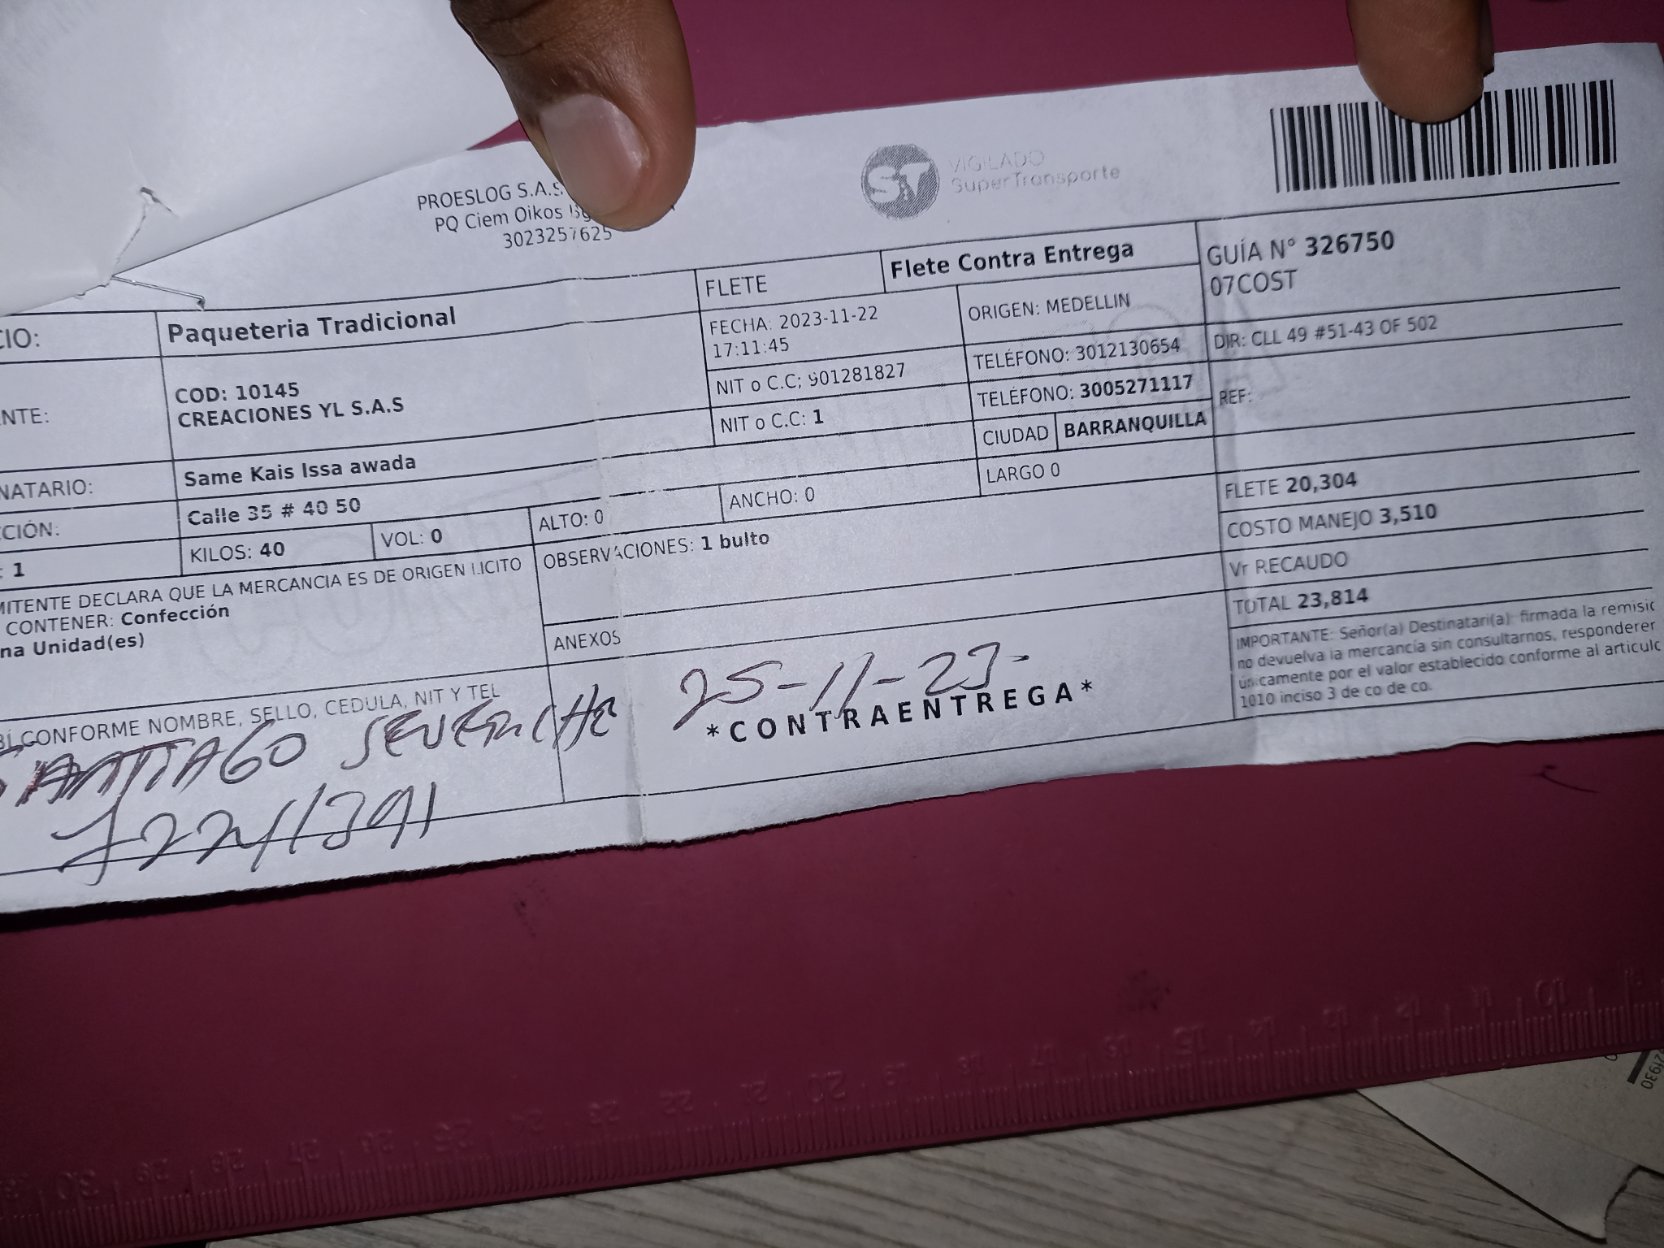 PROESLOG S.A.S
PQ Ciem Oikos
3023257625
VIGILADO
SuperTransporte
CIO:
Paqueteria Tradicional
FLETE
Flete Contra Entrega
GUÍA N° 326750
07COST
NTE:
COD: 10145
CREACIONES YL S.A.S
FECHA: 2023-11-22
17:11:45
ORIGEN: MEDELLIN
NIT o C.C: 901281827
TELÉFONO: 3012130654
DIR: CLL 49 #51-43 OF 502
NATARIO:
Same Kais Issa awada
NIT o C.C: 1
TELÉFONO: 3005271117
REF:
CCIÓN:
Calle 35 # 40 50
CIUDAD
BARRANQUILLA
: 1
KILOS: 40
VOL: 0
ALTO: 0
ANCHO: 0
LARGO 0
FLETE 20,304
COSTO MANEJO 3,510
Vr RECAUDO
TOTAL 23,814
MITENTE DECLARA QUE LA MERCANCIA ES DE ORIGEN LICITO
CONTENER: Confección
na Unidad(es)
OBSERVACIONES: 1 bulto
ANEXOS
IMPORTANTE: Señor(a) Destinatari(a): firmada la remisic
no devuelva la mercancía sin consultarnos, responderer
únicamente por el valor establecido conforme al articulo
1010 inciso 3 de co de co.
BI CONFORME NOMBRE, SELLO, CEDULA, NIT Y TEL
SANTIAGO SEVERICHE
25-11-23-
*CONTRAENTREGA*
30 29 28 27 26 25 24 23 22 21 20 19 18 17 16 15 14 13 12 11 10